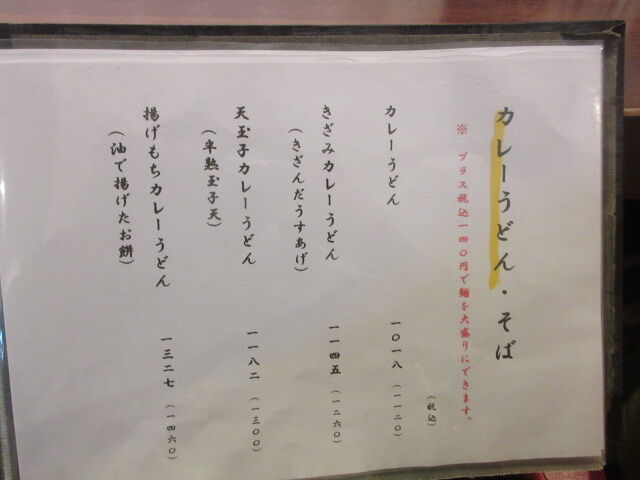 カレーうどん・そば
※ プラス税込一四〇円で麺を大盛りにできます。
(税込)
カレーうどん 一〇一八 (一一二〇)
きざみカレーうどん 一一四五 (一二六〇)
(きざんだうすあげ)
天玉子カレーうどん 一一八二 (一三〇〇)
(半熟玉子天)
揚げもちカレーうどん 一三二七 (一四六〇)
(油で揚げたお餅)